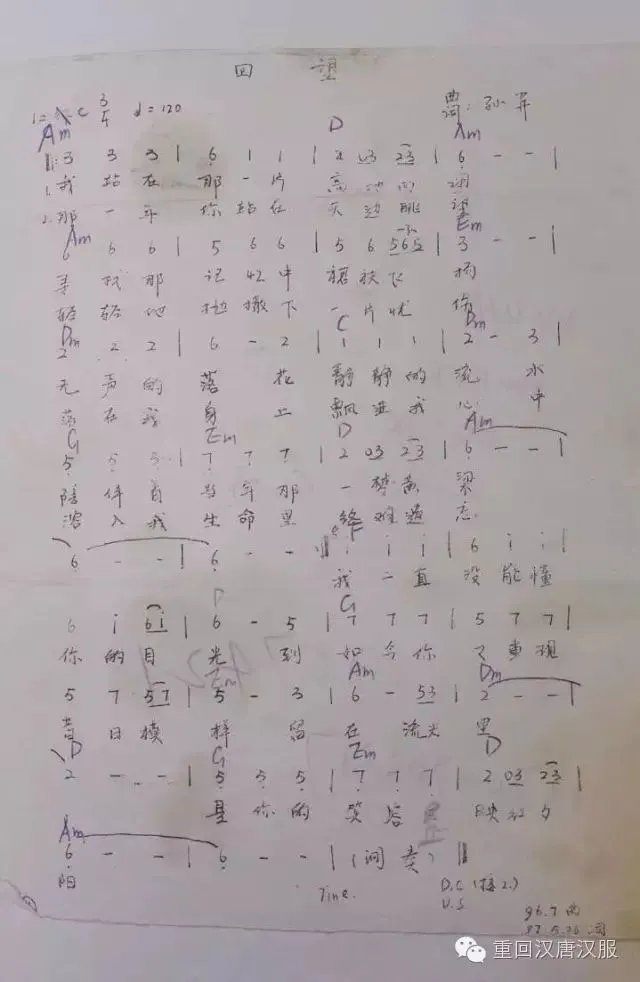 回 望
1= C 3/4 ♩=120
曲词：孙异
Am D Am
‖: 3 3 3 | 6 1 1 | 2 03 23 | 6 - - |
1. 我 站 在 那 一 片 高 向
2. 那 一 年 你 站 在 天 边 眺
Am Em
6 6 6 | 5 6 6 | 5 6 565 | 3 - - |
寻 找 那 记 忆 中
轻 轻 地 抛 撒 下 一 片 忧 伤
Dm C Dm
2 2 2 | 6 - 2 | 1 1 1 | 2 - 3 |
无 声 的 落 花 静 静 的 流 水
落 在 我 身 上 飘 进 我 心 中
G Em D Am
5 5 5 | 7 7 7 | 2 03 23 | 6 - - |
陪 伴 着 当 年 那 一 梦 黄 粱
溶 入 我 生 命 里 终 难 遗 忘
6 - - | 6 - - :‖ i i i | 6 i i |
我 一 直 没 能 懂
6 i 6i | 6 - 5 | 7 7 7 | 5 7 7 |
你 的 目 光 到 如 今 你 又 重 现
G
Em Am Dm
5 7 57 | 5 - 3 | 6 - 53 | 2 - - |
昔 日 模 样 留 在 流 光 里
D G Em D
2 - - | 5 5 5 | 7 7 7 | 2 03 23 |
是 你 的 笑 容 映 红 夕
Am
6 - - | 6 - - | (间奏) ‖
阳
Fine. D.C (接2.)
D.S
96.7 曲
97.5.26 词
重回汉唐汉服